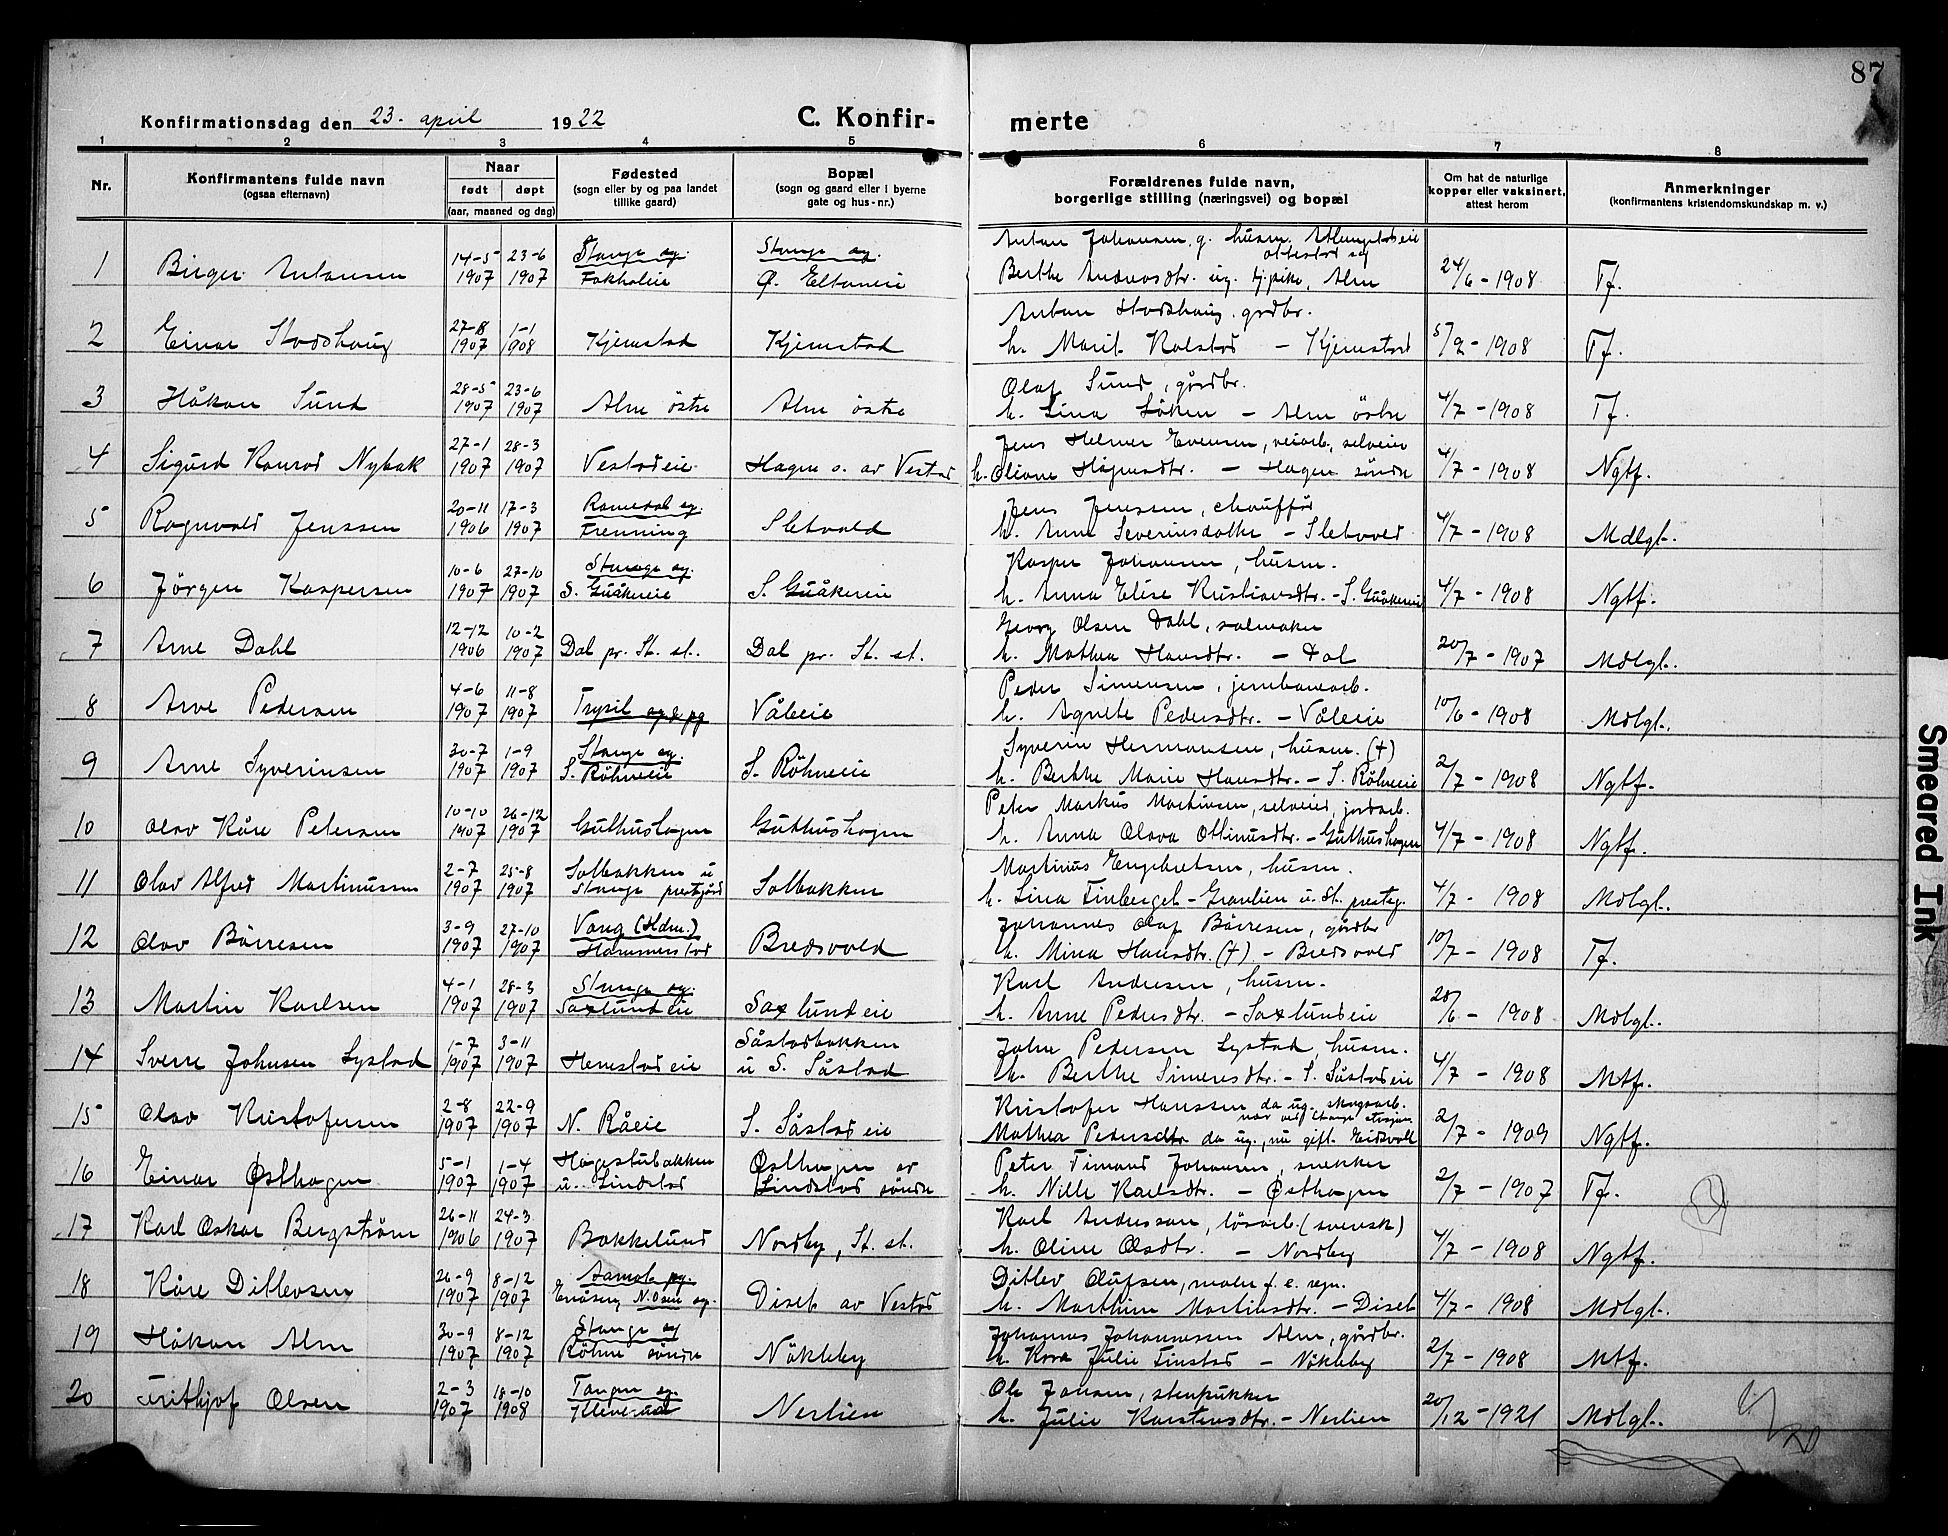 87
Konfirmationsdag den 23. april 1922
C. Konfir-
merte
1 2 3 4 5 6 7 8
Nr.
Konfirmantens fulde navn
(ogsaa efternavn)
Naar
født døpt
(aar, maaned og dag)
Fødested
(sogn eller by og paa landet
tillike gaard)
Bopæl
(sogn og gaard eller i byerne
gate og hus-nr.)
Forældrenes fulde navn,
borgerlige stilling (næringsvei) og bopæl
Om hat de naturlige
kopper eller vaksinert,
attest herom
Anmerkninger
(konfirmantens kristendomskundskap m. v.)
14-5 23-6 Stange sg. Stange sg. Anton Johansen, g. husm.
1 Birger Antonsen 1907 1907 Ø. Eltoneie Berthe Andreasdtr. ug. tj.pike, Alm 24/6-1908 Tf.
27-8 1-1 Anton Stodshaug, grdbr.
2 Einar Stodshaug 1907 1908 Kjemstad Kjemstad h. Marit Kolstad - Kjemstad 5/9-1908 Tf.
28-5 23-6 Olaf Sund, gårdbr.
3 Håkon Sund 1907 1907 Alm östre Alm östre h. Lina Löken - Alm östre 4/7-1908 Tf.
27-1 28-3 Jens Helmer Evensen, veiarb., selveier
4 Sigurd Konrad Nybak 1907 1907 Vestadeie Hagen s. av Vestad h. Oliane Håjensdtr. - Hagen söndre 4/7-1908 Ngtf.
20-11 17-3 Romedal sg. Jens Jenssen, chaufför
5 Ragnvald Jenssen 1906 1907 Frenning Sletvold h. Anna Severinsdatter - Sletvold 4/7-1908 Mdlgl.
10-6 27-10 Stange sg. Kasper Johansen, husm.
6 Jörgen Kaspersen 1907 1907 S. Guåkereie S. Guåkereie h. Anna Elise Kristiansdtr. - S. Guåkereie 4/7-1908 Ngtf.
12-12 10-2 Georg Olsen Dahl, salmaker
7 Arne Dahl 1906 1907 Dal pr. St. st. Dal pr. St. st. h. Mathea Hansdtr. - Dal 20/7-1907 Mdlgl.
4-6 11-8 Peder Simensen, jernbanearb.
8 Arne Pedersen 1907 1907 Trysil sg. & pg. Våleie h. Agnete Pedersdtr. - Våleie 10/6-1908 Mdlgl.
30-7 1-9 Stange sg. Syverin Hermansen, husm. (+)
9 Arne Syverinsen 1907 1907 S. Röhneeie S. Röhneeie h. Berthe Marie Hansdtr. - S. Röhneeie 2/7-1908 Ngtf.
10-10 26-12 Peter Markus Martinsen, selveier, jordarb.
10 Olav Kåre Petersen 1907 1907 Guthushagen Guthushagen h. Anna Olava Ottinusdtr. - Guthushagen 4/7-1908 Ngtf.
2-7 25-8 Solbakken u. Martinus Engebretsen, husm.
11 Olav Alfred Martinussen 1907 1907 Stange prestgård Solbakken h. Lina Finberget - Granlien u. St. prestg. 4/7-1908 Mdlgl.
3-9 27-10 Vang (Hdm.) Johannes Olaf Börresen, gårdbr
12 Olav Börresen 1907 1907 Hammerstad Bredsvold h. Mina Hansdtr. (+) - Bredsvold 10/7-1908 Tf.
4-1 28-3 Stange sg. Karl Andersen, husm.
13 Martin Karlsen 1907 1907 Saxlundeie Saxlundeie h. Anne Pedersdtr. - Saxlundeie 28/6-1908 Mdlgl.
1-7 3-11 Såstadbakken John Pedersen Lystad, husm.
14 Sverre Johnsen Lystad 1907 1907 Hemstadeie u. S. Såstad h. Berthe Simensdtr. - S. Såstadeie 4/7-1908 Mtf.
2-8 22-9 Kristofer Hanssen da ug. skogsarb.
15 Olav Kristofersen 1907 1907 N. Råeie S. Såstadeie Mathea Pedersdtr da ug., nu gift. Eidsvoll 2/7-1909 Ngtf.
5-1 1-4 Hagestubakken Østhagen av Peter Timand Johansen, snekker
16 Einar Østhagen 1907 1907 u. Lindstad Lindstad söndre h. Nille Karlsdtr. - Østhagen 2/7-1907 Tf.
26-11 24-3 Karl Andersson, lösarb. (svensk)
17 Karl Oskar Bergström 1906 1907 Bakkelund Nordby, St. st. h. Oline Olsdtr. - Nordby 4/7-1908 Ngtf.
26-9 8-12 Aamot pg. Ditlev Olufsen, maler f. e. regn.
18 Kåre Ditlevsen 1907 1907 N. Osen sg. Diset av Vestad h. Marthine Martinsdtr. - Diset 4/7-1908 Mdlgl.
30-9 8-12 Stange sg Johannes Johannessen Alm, gårdbr.
19 Håkon Alm 1907 1907 Röhne söndre Nökleby h. Kora Julie Finstad - Nökleby 2/7-1908 Mtf.
2-3 18-10 Tangen sg. Ole Jonsen, stenpukker
20 Frithjof Olsen 1907 1908 Nerlien h. Julie Karstensdtr. - Nerlien 20/12-1921 Mdlgl.
Smeared Ink